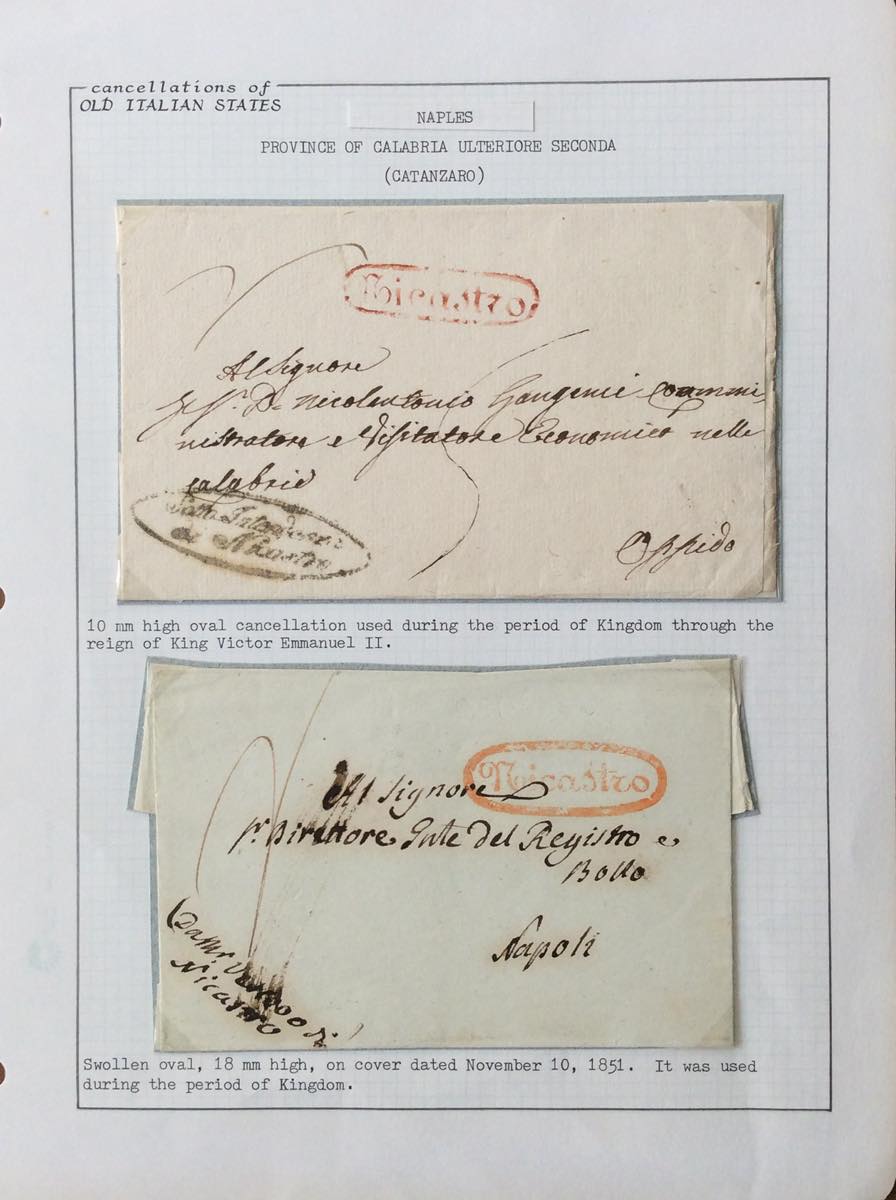 cancellations of
OLD ITALIAN STATES
NAPLES
PROVINCE OF CALABRIA ULTERIORE SECONDA
(CATANZARO)
Nicastro
Al Signore
Sig.r D. Nicolantonio Gangemi Commi
nistratore e Visitatore Economico nelle
Calabrie
Sotto Intendenza
di Nicastro
Oppido
10 mm high oval cancellation used during the period of Kingdom through the
reign of King Victor Emmanuel II.
Nicastro
Al Signore
Sr. Direttore Gnle del Registro e
Bollo
Napoli
Nicastro
Swollen oval, 18 mm high, on cover dated November 10, 1851. It was used
during the period of Kingdom.